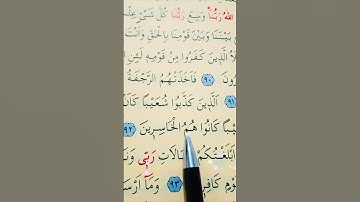 اللّٰهُ رَبُّنَا وَسِعَ رَبُّنَا كُلَّ شَيْءٍ عِلْمـ
بَيْنَنَا وَبَيْنَ قَوْمِنَا بِالْحَقِّ وَاَنْتَ
لَاُ الَّذِينَ كَفَرُوا مِنْ قَوْمِهِ لَئِنِ ا
رُونَ ٩٠ فَاَخَذَتْهُمُ الرَّجْفَةُ
٩١ اَلَّذِينَ كَذَّبُوا شُعَيْبًا كَاَنْ
ـبًا كَانُوا هُمُ الْخَاسِرِينَ ٩٢
اَبْلَغْتُكُمْ ـالَاتِ رَبِّي وَنَـ
ـوْمٍ كَافِرِ ٩٣ وَمَا اَرْسَـ